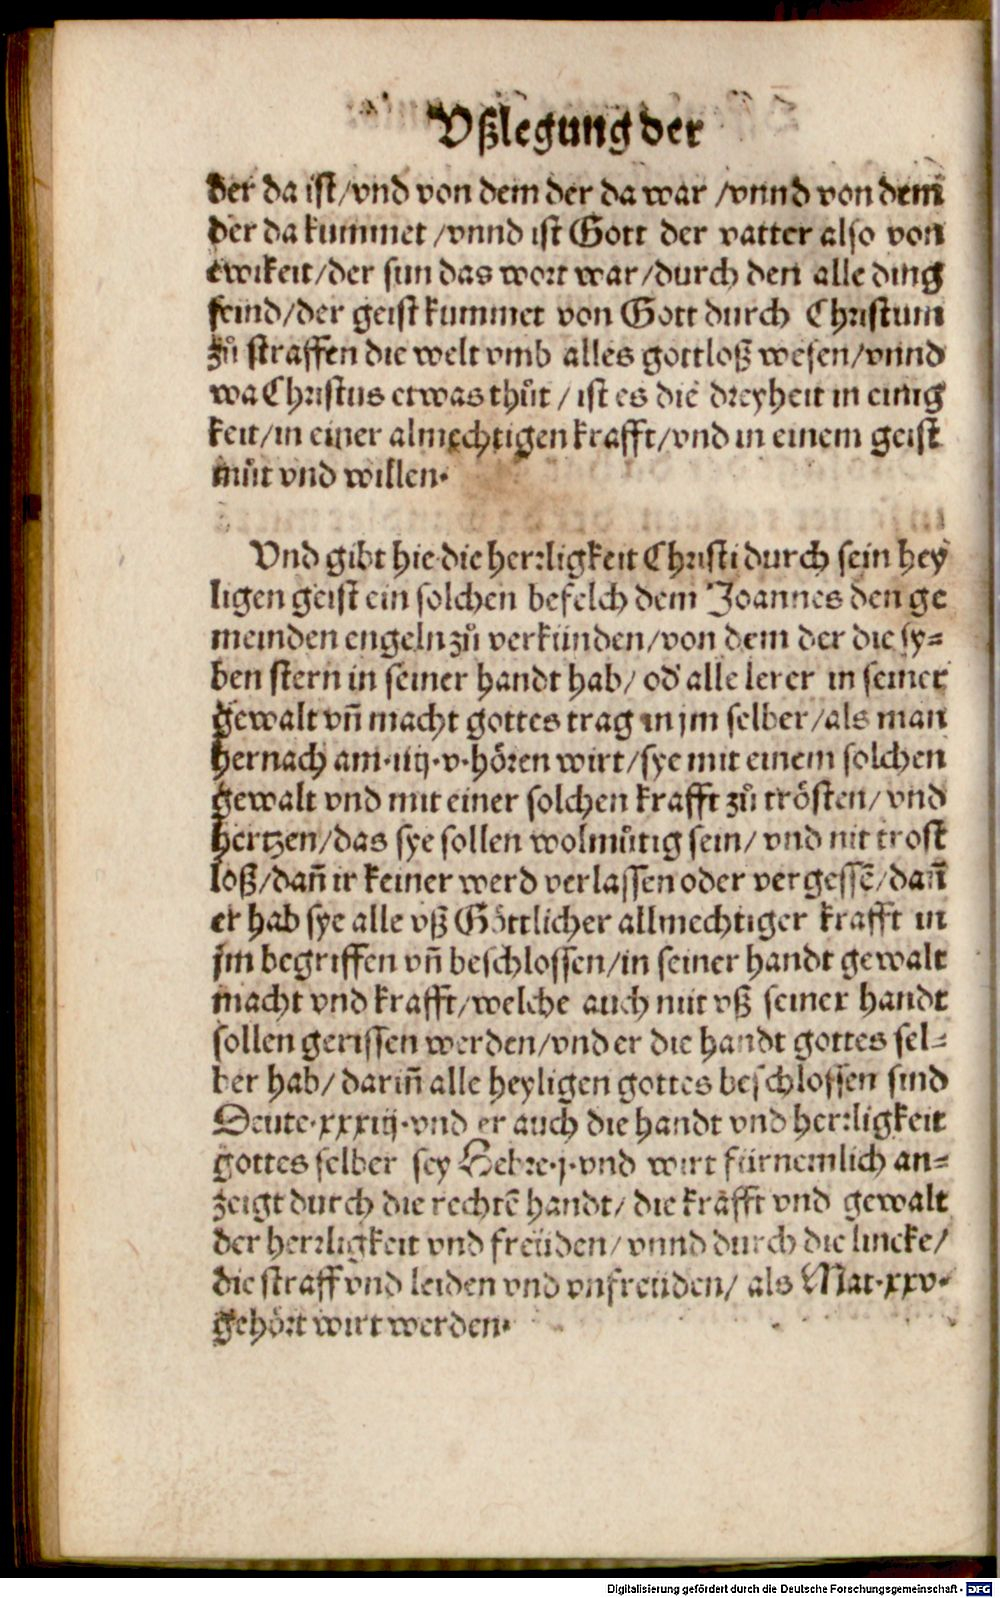 Vßlegung der
der da ist/vnd von dem der da war /vnnd von dem
der da kummet /vnnd ist Gott der vatter also von
ewikeit/der sun das wort war/durch den alle ding
seind/der geist kummet von Gott durch Christum
zů straffen die welt vmb alles gottloß wesen/vnnd
wa Christus etwas thůt / ist es die dreyheit in einig
keit/in einer almechtigen krafft/vnd in einem geist
můt vnd willen.
Vnd gibt hie die herrligkeit Christi durch sein hey
ligen geist ein solchen befelch dem Joannes den ge
meinden engeln zů verkünden/von dem der die sy⸗
ben stern in seiner handt hab/ od' alle lerer in seiner
gewalt vñ macht gottes trag in jm selber/als man
hernach am.iiij.v.hören wirt/sye mit einem solchen
gewalt vnd mit einer solchen krafft zů trösten/vnd
hertzen/das sye sollen wolmůtig sein/ vnd nit trost
loß/dañ ir keiner werd verlassen oder vergessē/dañ
er hab sye alle vß Göttlicher allmechtiger krafft in
jm begriffen vñ beschlossen/in seiner handt gewalt
macht vnd krafft/welche auch nüt vß seiner handt
sollen gerissen werden/vnd er die handt gottes sel⸗
ber hab/ dariñ alle heyligen gottes beschlossen sind
Deute.xxxiij.vnd er auch die handt vnd herrligkeit
gottes selber sey Hebre.j.vnd wirt fürnemlich an⸗
zeigt durch die rechtē handt/ die krafft vnd gewalt
der herrligkeit vnd freüden/ vnnd durch die lincke/
die straff vnd leiden vnd vnfreüden/ als Mat.xxv.
gehört wirt werden.
Digitalisierung gefördert durch die Deutsche Forschungsgemeinschaft - DFG